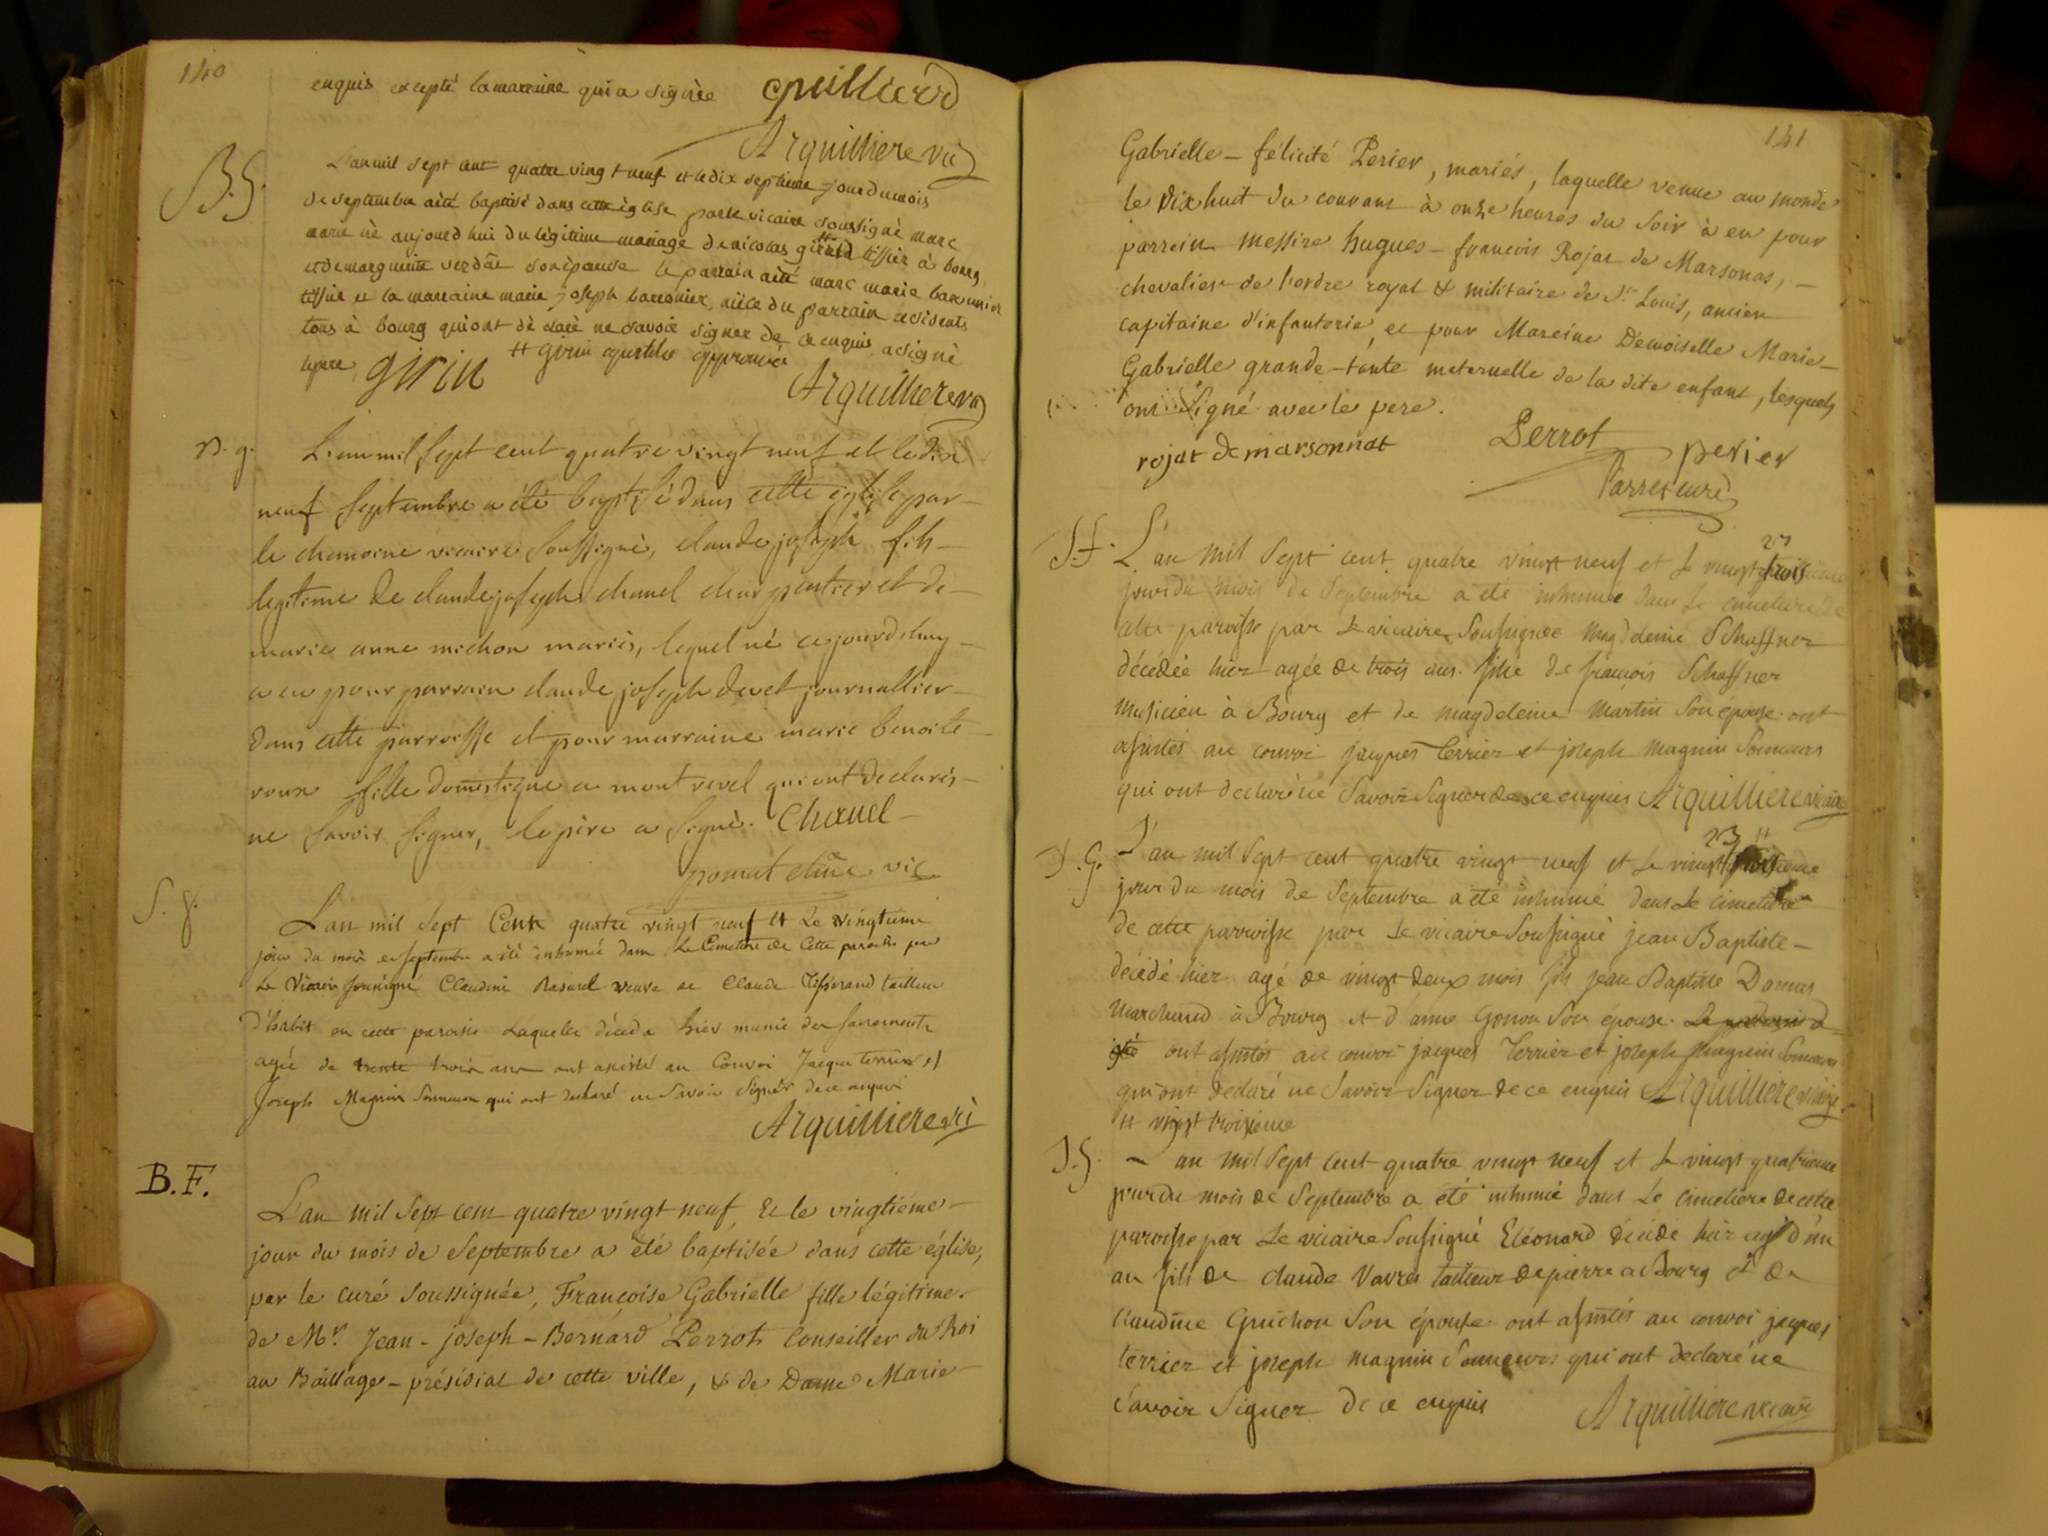 140
enquis excepté la marraine qui a signée cpuilliard
Arquilliere vic
B.G.
L'an mil sept cent quatre vingt neuf et le dix septieme jour du mois
de septembre a été baptisé dans cette église par le vicaire soussigné marc
marie né aujourd'hui du légitime mariage de nicolas girin tissier à bourg
et de marguerite verdat son épouse le parrain a été marc marie baronnier
tissier et la marraine marie joseph baronnier, nièce du parrain résidents
tous à bourg qui ont déclaré ne savoir signer de ce enquis, a signé
le pere, girin # girin apostille approuvée
Arquilliere vic
B. g.
L'an mil sept cent quatre vingt neuf et le dix
neuf septembre a été baptisé dans cette église par
le chanoine vicaire soussigné, claude joseph fils
legitime de claude joseph chanel charpentier et de
marie anne michon mariés, lequel né cejourd'huy
a eu pour parrain claude joseph devet journallier
dans cette parroisse et pour marraine marie benoite
roux fille domestique a montrevel qui ont declarés
ne savoir signer, le père a signé. Chanel
chne vic
S. f.
L'an mil sept Cent quatre vingt neuf et Le vingtieme
jour du mois de septembre a été inhumée dans Le Cemetiere de Cette paroisse par
Le Vicaire soussigné Claudine Rasurel veuve de Claude Tisserand tailleur
d'habit en cette paroisse Laquelle décéda hier munie des sacrements
agée de trente trois ans ont assisté au Convoi Jacque terrier et
Joseph Magnin sonneurs qui ont declaré ne savoir signer de ce enquis
Arquilliere vic
B. F.
L'an mil sept cent quatre vingt neuf, Et le vingtiéme
jour du mois de Septembre a été baptisée dans cette église,
par le curé soussignée, Françoise Gabrielle fille légitime
de Mr. Jean-joseph-Bernard Perrot, Conseiller du Roi
au Baillage-présidial de cette ville, & de Dame Marie
141
Gabrielle-félicité Perier, mariés, laquelle venue au monde
le dix huit du courant à onze heures du soir à eu pour
parrein messire hugues-francois Rojat de Marsonas,
chevalier de l'ordre royal & militaire de St Louis, ancien
capitaine d'infanterie, et pour Mareine Demoiselle Marie
Gabrielle grande-tante maternelle de la dite enfant, lesquels
ont signé avec le pere.
rojat de marsonnat Perrot perier
curé
S.f.
L'an mil sept cent quatre vingt neuf et le vingt trois 23
jour du mois de Septembre a été inhumée dans le cimetiere de
cette paroisse par le vicaire soussignée Magdeleine Schaffner
décédée hier agée de trois ans. fille de francois Schaffner
musicien à Bourg et de magdeleine Martin son épouse. ont
assistés au convoi jacques terrier et joseph magnin sonneurs
qui ont declaré ne savoir signer de ce enquis Arquilliere vicaire
S. G.
L'an mil sept cent quatre vingt neuf et le vingt 23 #
jour du mois de septembre a été inhumé dans le cimetiere
de cette parroisse par le vicaire soussigné jean Baptiste
décédé hier agé de vingt deux mois fils jean Baptiste Damas
marchand à Bourg et d'anne Gonon son épouse.
ont assistés au convoi jacques terrier et joseph magnin sonneurs
qui ont declaré ne savoir signer de ce enquis Arquilliere vicaire
# vingt troisieme
S. G.
L'an mil sept cent quatre vingt neuf et le vingt quatrieme
jour du mois de Septembre a été inhumé dans le cimetiere de cette
paroisse par le vicaire soussigné Eléonard décédé hier agé d'un
an fils de claude Vavres tailleur de pierre a Bourg et de
claudine Guichon son épouse ont assistés au convoi jacques
terrier et joseph magnin sonneurs qui ont declaré ne
savoir signer de ce enquis Arquilliere vicaire